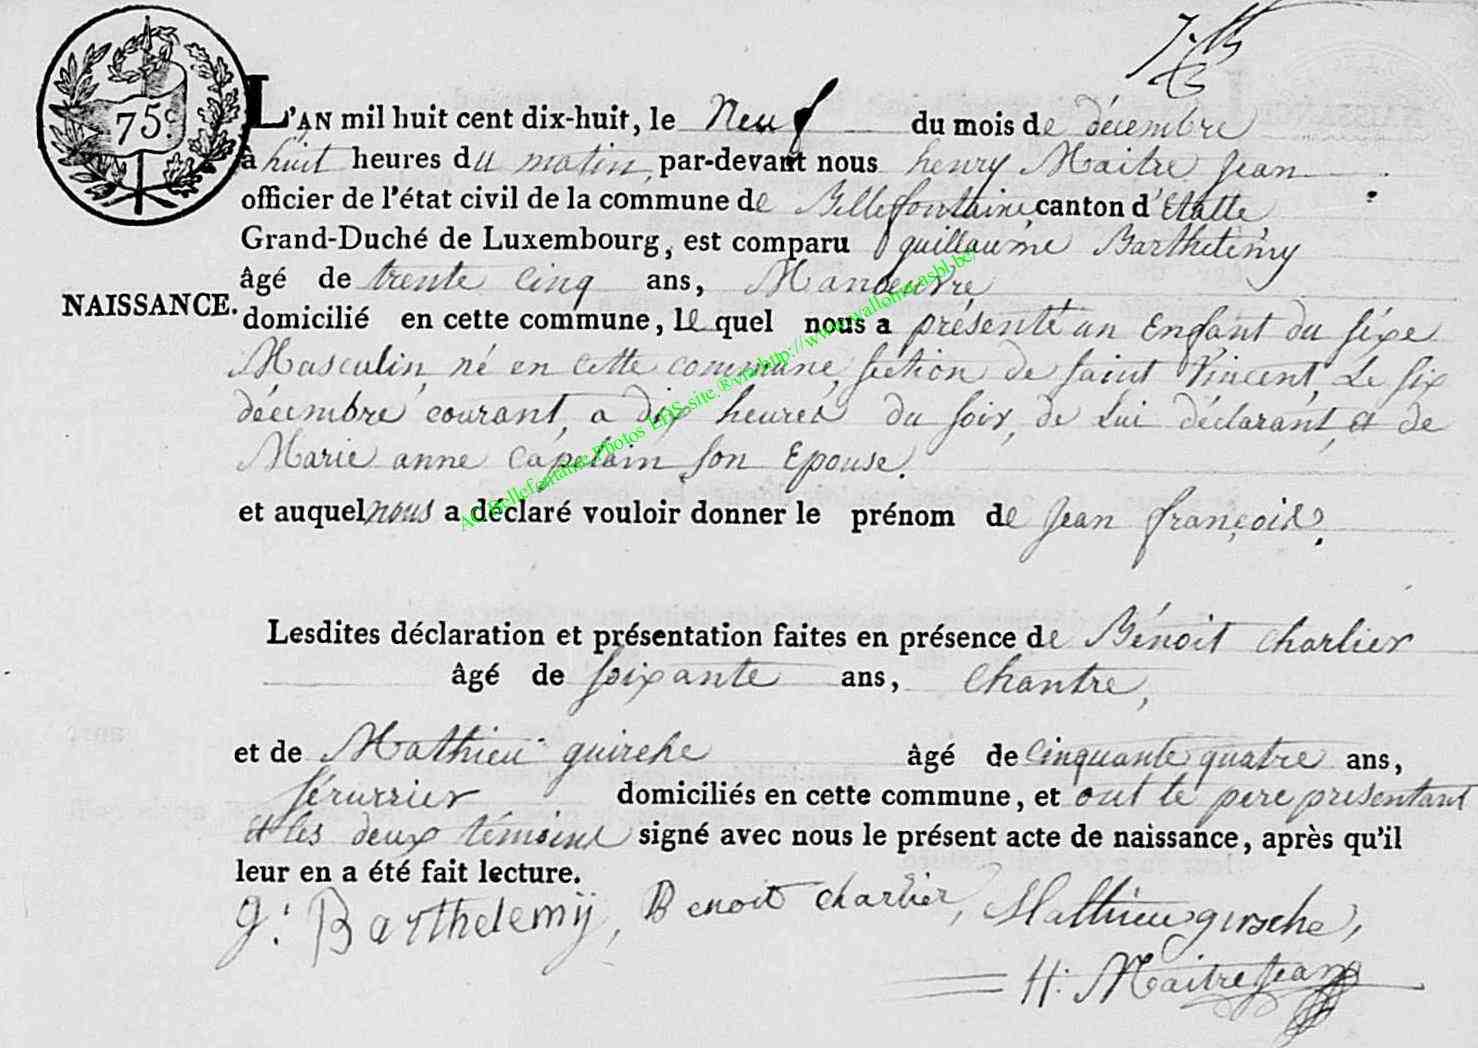 75 c.
L'AN mil huit cent dix-huit, le Neuf du mois de décembre
à huit heures du matin, par-devant nous henry Maitre Jean
officier de l'état civil de la commune de Bellefontaine, canton d'Etalle
Grand-Duché de Luxembourg, est comparu guillaume Barthelémy
âgé de trente cinq ans, Manoeuvre
NAISSANCE. domicilié en cette commune, le quel nous a présenté un Enfant du séxe
Masculin, né en cette commune, section de saint Vincent, Le six
décembre courant, a dix heures du soir, de Lui déclarant, et de
Marie anne Capelain son Epouse.
et auquel nous a déclaré vouloir donner le prénom de Jean françois.
Lesdites déclaration et présentation faites en présence de Bénoit Charlier
âgé de soixante ans, Chantre,
et de Mathieu guirche âgé de Cinquante quatre ans,
sérurrier domiciliés en cette commune, et ont le pere présentant
et les deux témoins signé avec nous le présent acte de naissance, après qu'il
leur en a été fait lecture.
g. Barthelemÿ, Benoit charlier, Mathieu girsche,
H. Maitrejean